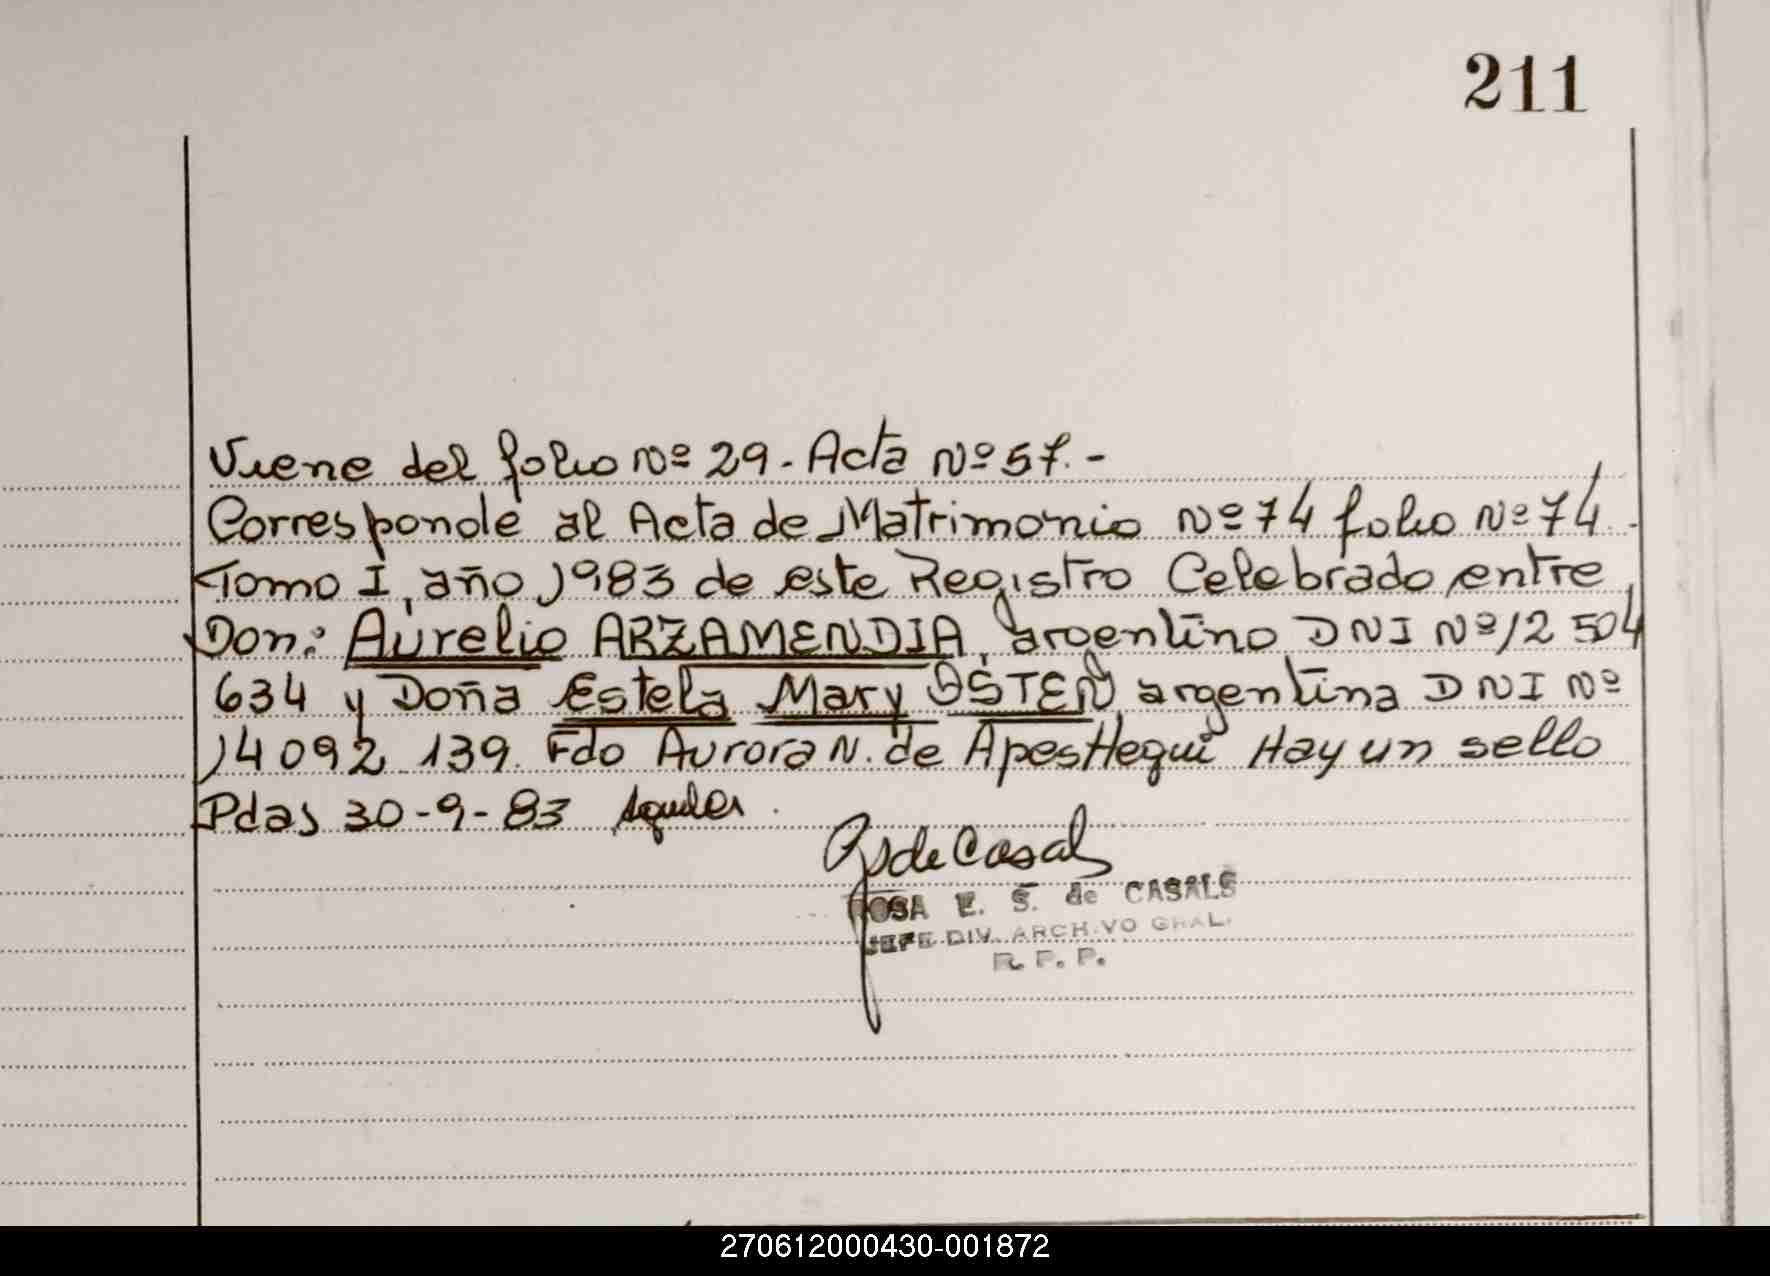 211
Viene del folio Nº 29. Acta Nº 57.-
Corresponde al Acta de Matrimonio Nº 74 folio Nº 74.-
Tomo I, año 1983 de este Registro Celebrado entre
Don: Aurelio ARZAMENDIA, argentino DNI Nº 12 504
634 y Doña Estela Mary OSTEN argentina DNI Nº
14 092 139. Fdo Aurora N. de Apesttegui Hay un sello
Pdas 30-9-83
de Casals
ROSA E. S. de CASALS
JEFE DIV. ARCHIVO GRAL.
R. P. P.
270612000430-001872